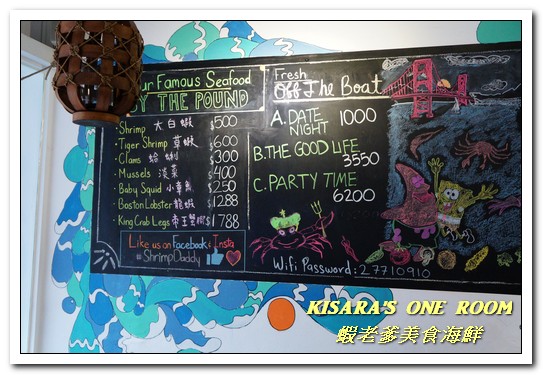 ur Famous Seafood
BY THE POUND
Shrimp 大白蝦 $500
Tiger Shrimp 草蝦 $600
Clams 蛤蜊 $300
Mussels 淡菜 $400
Baby Squid 小章魚 $250
Boston Lobster 龍蝦 $1288
King Crab Legs 帝王蟹腳 $1788
Like us on Facebook & Insta
#ShrimpDaddy
Fresh
Off The Boat
A. DATE NIGHT 1000
B. THE GOOD LIFE 3550
C. PARTY TIME 6200
Wifi Password: 27710910
KISARA'S ONE ROOM
蝦老爹美食海鮮